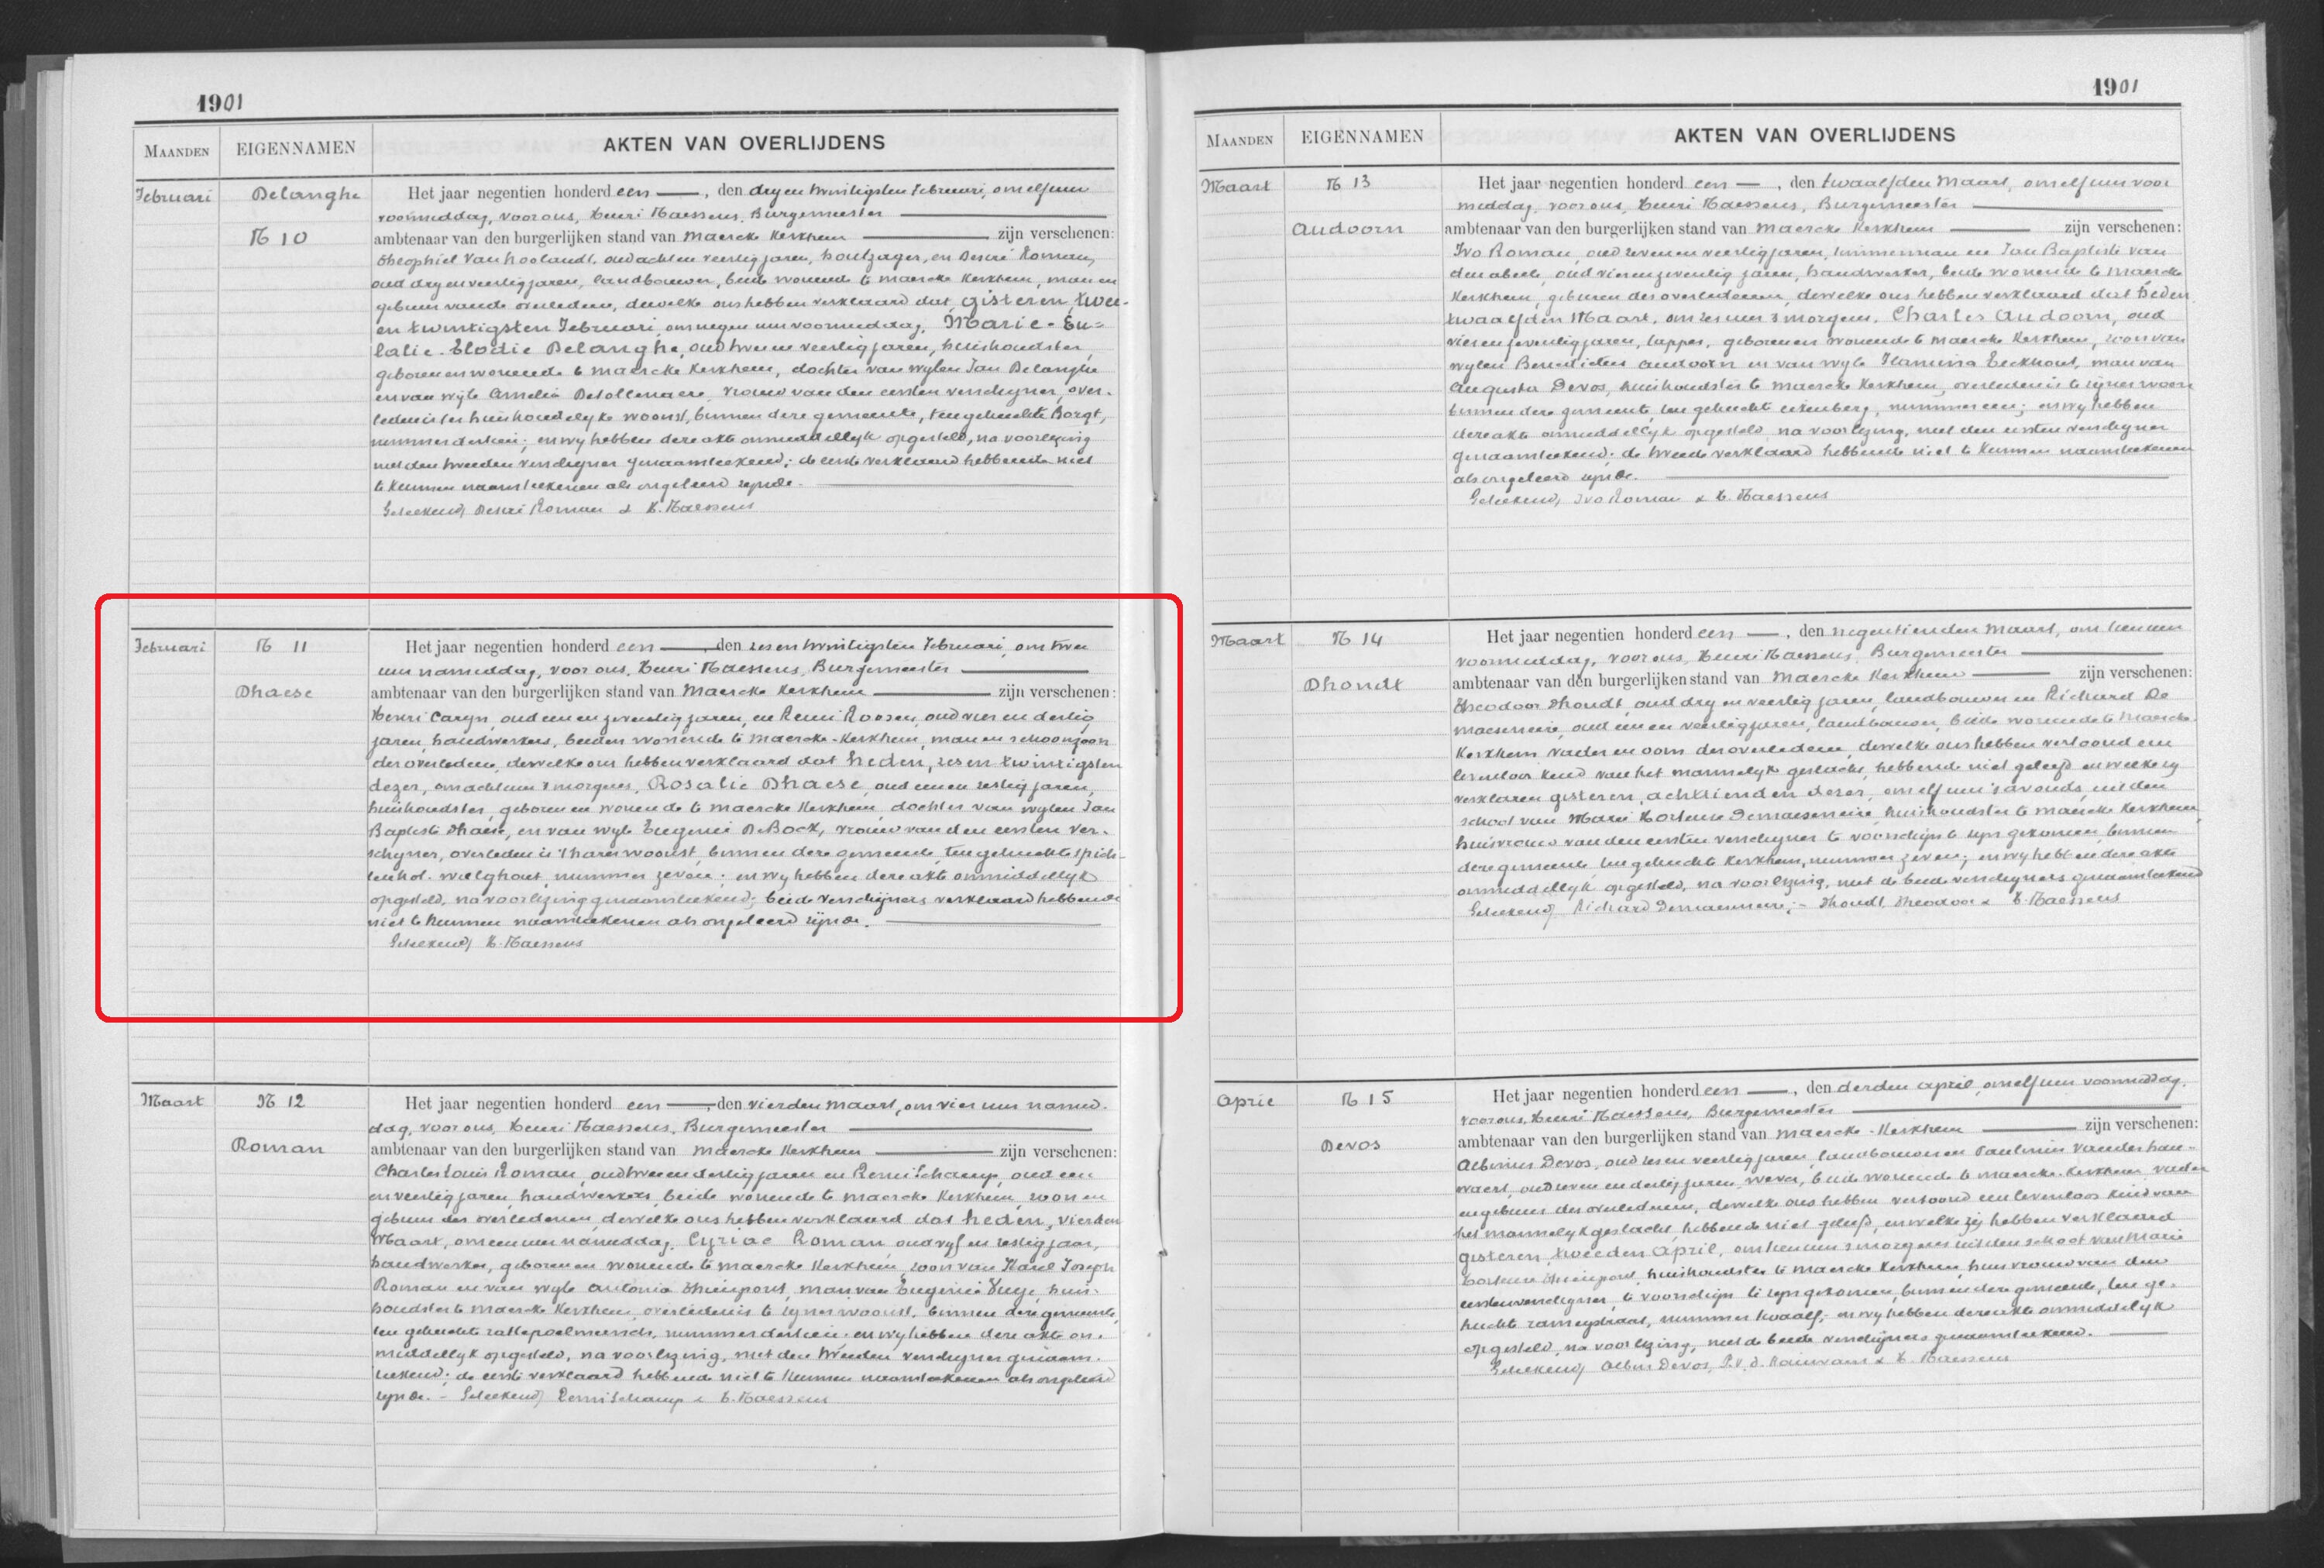 1901
MAANDEN EIGENNAMEN AKTEN VAN OVERLIJDENS
Februari Delanghe N 10
Het jaar negentien honderd een —, den dry en twintigsten Februari, om elf uren
voormiddag, voor ons, Henri Naessens, Burgemeester
ambtenaar van den burgerlijken stand van Maercke Kerkhem — zijn verschenen:
Theophiel Van hoolandt, oud acht en veertig jaren, houtzager, en Desiré Roman,
oud dry en veertig jaren, landbouwer, beide wonende te Maercke Kerkhem, man en
gebuur van de overledene, dewelke ons hebben verklaard dat gisteren, twee-
en twintigsten Februari, om negen uren voormiddag, Marie-Eu=
lalie-Elodie Delanghe, oud twee en veertig jaren, huishoudster,
geboren en wonende te Maercke Kerkhem, dochter van wylen Jan Delanghe
en van wyle Amelia Detollenaere, vrouw van den eersten verschyner, over-
leden is ter huishoudelyke woonst, binnen deze gemeente, ten gehuchte Borgt,
nummer dertien; en wy hebben deze akte onmiddellyk opgesteld, na voorlezing
met den tweeden verschyner genaamteekend; de eerste verklaard hebbende niet
te kunnen naamteekenen als ongeleerd zynde.
Geteekend, Desiré Roman & H. Naessens
Februari N 11 Dhaese
Het jaar negentien honderd een —, den zes en twintigsten Februari, om twee
uren namiddag, voor ons, Henri Naessens, Burgemeester
ambtenaar van den burgerlijken stand van Maercke Kerkhem — zijn verschenen:
Henri Caryn, oud een en zeventig jaren, en Remi Roosen, oud vier en dertig
jaren, handwerkers, beiden wonende te Maercke-Kerkhem, man en schoonzoon
der overledene, dewelke ons hebben verklaard dat heden, zes en twintigsten
dezer, om acht uren 's morgens, Rosalie Dhaese, oud een en zestig jaren,
huishoudster, geboren en wonende te Maercke Kerkhem, dochter van wylen Jan
Baptiste Dhaese, en van wyle Eugenie De Bock, vrouw van den eersten ver-
schyner, overleden is 't haren woonst, binnen deze gemeente, ten gehuchte
nummer zeven; en wy hebben deze akte onmiddellyk
opgesteld, na voorlezing genaamteekend; beide verschijners verklaard hebbende
niet te kunnen naamteekenen als ongeleerd zijnde.
Geteekend, H. Naessens
Maart N 12 Roman
Het jaar negentien honderd een —, den vierden Maart, om vier uren namid-
dag, voor ons, Henri Naessens, Burgemeester
ambtenaar van den burgerlijken stand van Maercke Kerkhem — zijn verschenen:
Charles Louis Roman, oud twee en dertig jaren en Remi Schamp, oud een
en veertig jaren, handwerkers, beide wonende te Maercke Kerkhem, zoon en
gebuur des overledenen, dewelke ons hebben verklaard dat heden, vierden
Maart, om een uur namiddag, Cyriac Roman, oud vyf en zestig jaar,
handwerker, geboren en wonende te Maercke Kerkhem, zoon van Karel Joseph
Roman en van wyle Antonia Thienpont, man van Eugenie huis-
houdster te Maercke Kerkhem, overleden is te zyner woonst, binnen deze gemeente,
ten gehuchte nummer dertien; en wy hebben deze akte on-
middellyk opgesteld, na voorlezing, met den tweeden verschyner genaam-
teekend; de eerste verklaard hebbende niet te kunnen naamteekenen als ongeleerd
zynde. - Geteekend, Remi Schamp & H. Naessens
1901
MAANDEN EIGENNAMEN AKTEN VAN OVERLIJDENS
Maart N 13 Audoorn
Het jaar negentien honderd een —, den twaalfden Maart, om elf uren voor
middag, voor ons, Henri Naessens, Burgemeester
ambtenaar van den burgerlijken stand van Maercke Kerkhem — zijn verschenen:
Ivo Roman, oud zeven en veertig jaren, timmerman en Jan Baptiste Van
den abeele, oud vier en zeventig jaren, handwerker, beide wonende te Maercke
Kerkhem, geburen des overledenen, dewelke ons hebben verklaard dat heden
twaalfden Maart, om zes uren 's morgens, Charles Audoorn, oud
vier en zeventig jaren, geboren en wonende te Maercke Kerkhem, zoon van
wylen Benedictus Audoorn en van wyle Eeckhout, man van
Augusta Devos, huishoudster te Maercke Kerkhem, overleden is te zyner woon
binnen deze gemeente, ten gehuchte eekenberg, nummer een; en wy hebben
deze akte onmiddellyk opgesteld, na voorlezing, met den eersten verschyner
genaamteekend; de tweede verklaard hebbende niet te kunnen naamteekenen
als ongeleerd zynde.
Geteekend, Ivo Roman & H. Naessens
Maart N 14 Dhondt
Het jaar negentien honderd een —, den negentienden Maart, om tien uren
voormiddag, voor ons, Henri Naessens, Burgemeester
ambtenaar van den burgerlijken stand van Maercke Kerkhem — zijn verschenen:
Theodoor Dhondt, oud dry en veertig jaren, landbouwer en Richard De
maeseneire, oud een en veertig jaren, landbouwer, beide wonende te Maercke-
Kerkhem, vader en oom der overledene, dewelke ons hebben vertoond een
levenloos kind van het mannelyk geslacht, hebbende niet geleefd en welke zy
verklaren gisteren, achttienden dezer, om elf uren 's avonds, uit den
schoot van Marie Hortense Demaeseneire, huishoudster te Maercke Kerkhem,
huisvrouw van den eersten verschyner te voorschyn te zyn gekomen, binnen
deze gemeente, ten gehuchte Kerkhem, nummer zeven; en wy hebben deze akte
onmiddellyk opgesteld, na voorlezing, met de beide verschyners genaamteekend
Geteekend, Richard Demaeseneire; - Dhondt Theodoor & H. Naessens
April N 15 Devos
Het jaar negentien honderd een —, den derden april, om elf uren voormiddag,
voor ons, Henri Naessens, Burgemeester
ambtenaar van den burgerlijken stand van Maercke-Kerkhem — zijn verschenen:
Albinus Devos, oud zes en veertig jaren, landbouwer en Paulinus Vander hau-
waert, oud zeven en dertig jaren, wever, beide wonende te Maercke-Kerkhem, vader
en gebuur des overledenen, dewelke ons hebben vertoond een levenloos kind van
het mannelyk geslacht, hebbende niet geleefd, en welke zij hebben verklaard
gisteren, tweeden April, om tien uren 's morgens uit den schoot van Marie
Hortense Thienpont, huishoudster te Maercke Kerkhem, huisvrouw van den
eersten verschyner, te voorschijn te zyn gekomen, binnen deze gemeente, ten ge-
huchte nummer twaalf; en wy hebben deze akte onmiddellyk
opgesteld, na voorlezing, met de beide verschijners genaamteekend.
Geteekend, Albin Devos, P. V. d. Hauwaert & H. Naessens